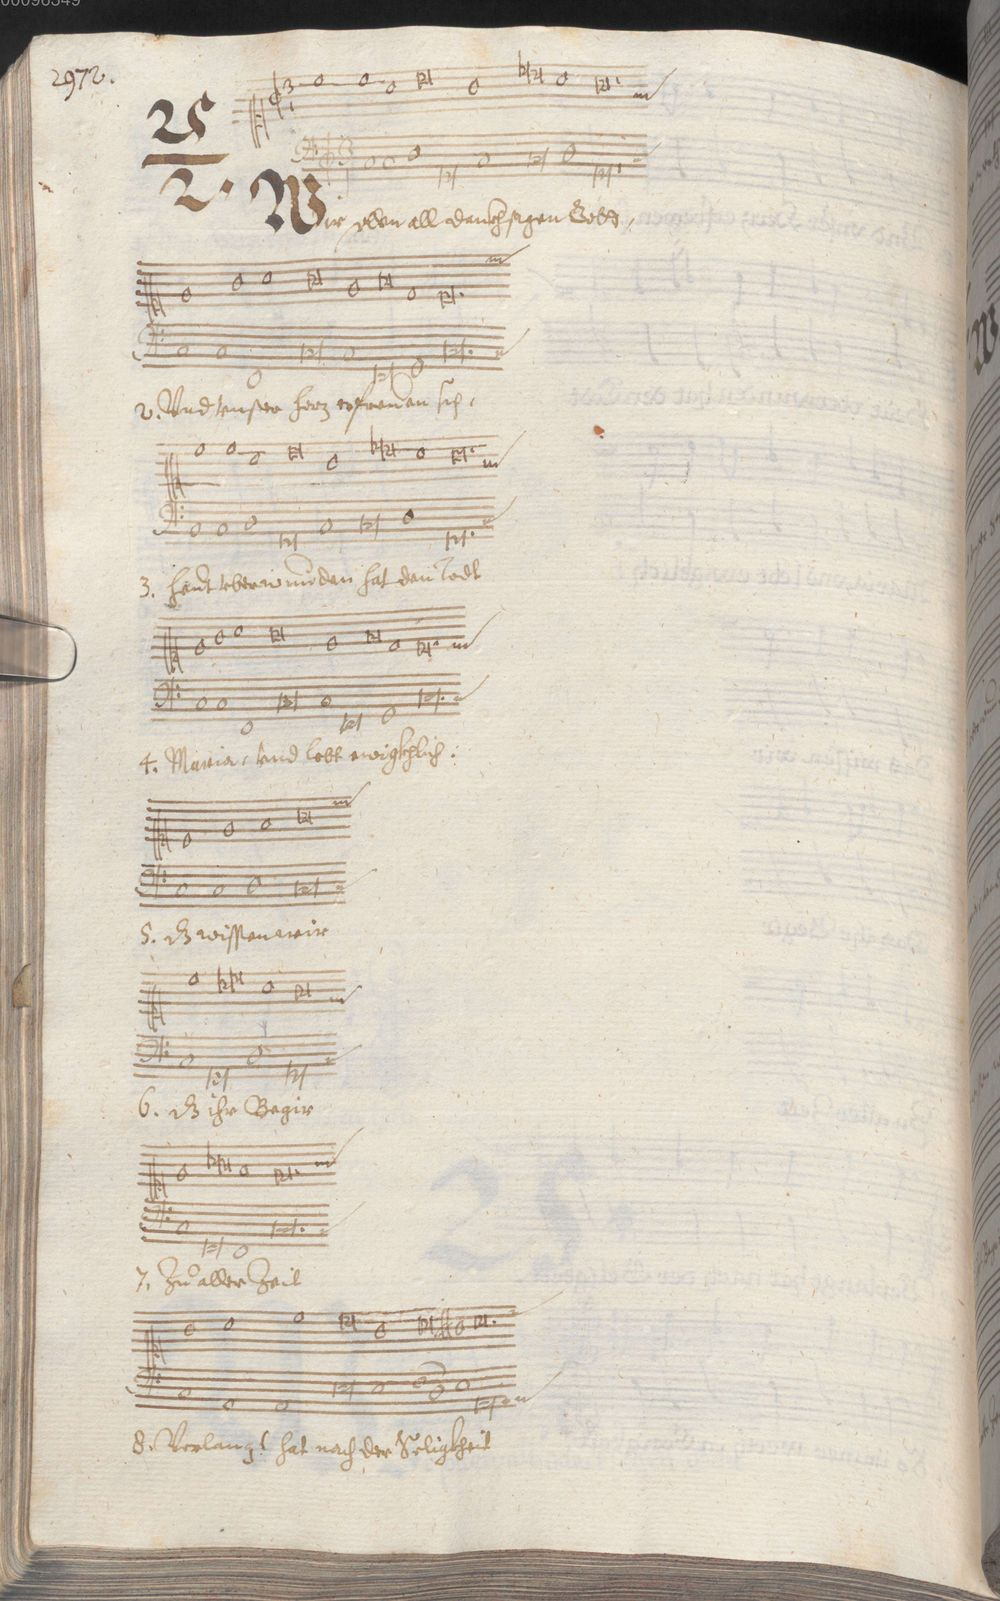 00096349
2972.
Wir ⟨⟩ all danckhsagen Gott,
2. Und unser hertz erfrewen sich,
3. heut uberwunden hat den Todt
4. Maria, und lebt ewigkhlich:
5. dz wissen wir
6. dz ihr Begir
7. Zu aller Zeit
8. Verlangt hat nach der Seligkheit